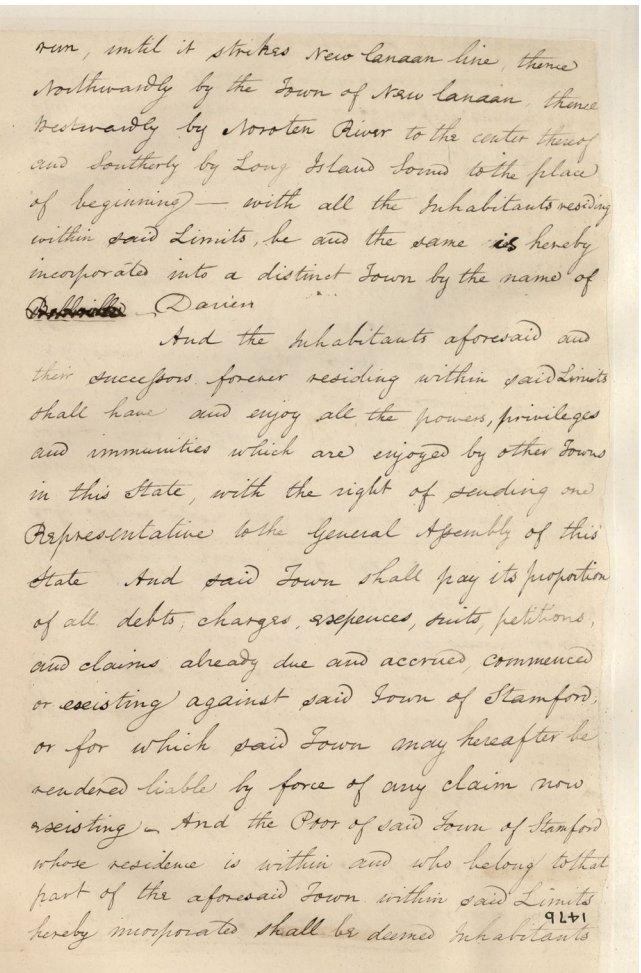 run, until it strikes New Canaan line, thence
Northwardly by the Town of New Canaan, thence
Westwardly by Noroten River to the center thereof
and Southerly by Long Island Sound to the place
of beginning — with all the Inhabitants residing
within said Limits, be and the same is hereby
incorporated into a distinct Town by the name of
Darien
And the Inhabitants aforesaid and
their successors forever residing within said Limits
shall have and enjoy all the powers, privileges
and immunities which are enjoyed by other Towns
in this State, with the right of sending one
Representative to the General Assembly of this
State And said Town shall pay its proportion
of all debts, charges, exepences, suits, petitions,
and claims already due and accrued, commenced
or exeisting against said Town of Stamford;
or for which said Town may hereafter be
rendered liable by force of any claim now
exeisting – And the Poor of said Town of Stamford
whose residence is within and who belong to that
part of the aforesaid Town within said Limits
hereby incorporated shall be deemed Inhabitants